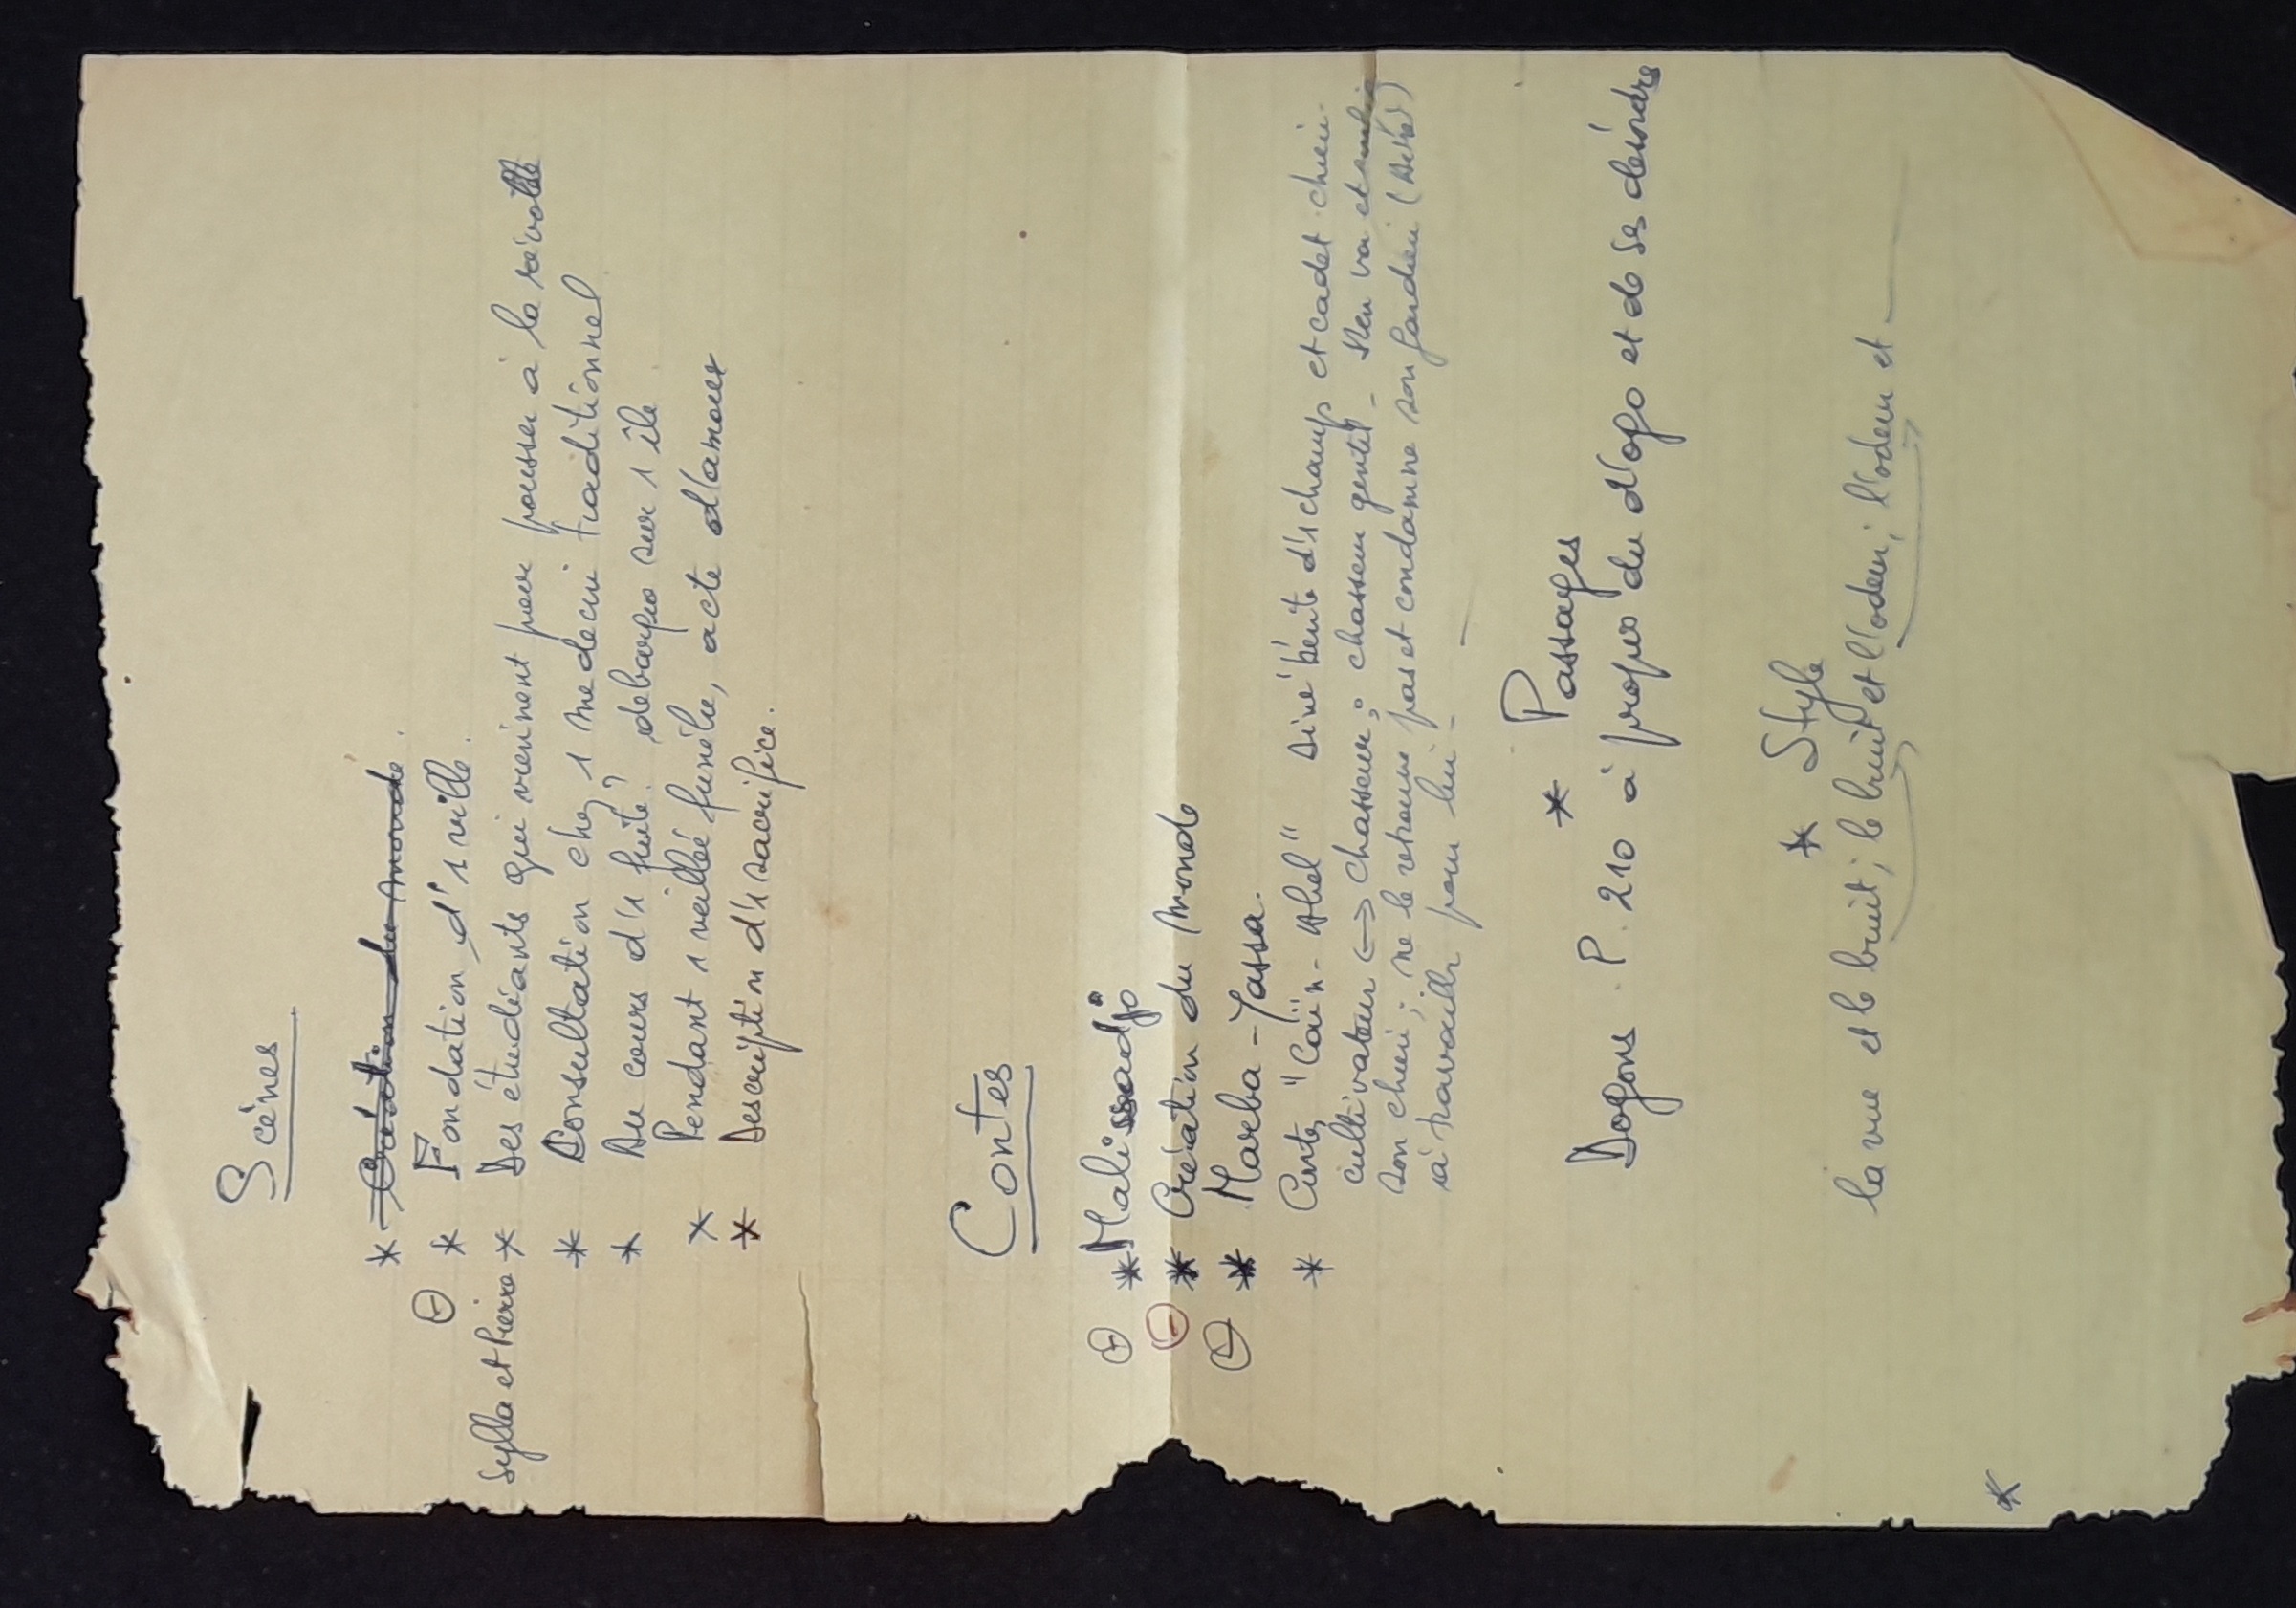 Scènes
* Création du monde.
⊖ * Fondation d'1 ville.
Sylla et Pierre * Des étudiants qui viennent pour pousser à la révolte
* Consultation chez 1 medecin traditionnel
* Au cours d'1 fuite, debarqués sur 1 île
* Pendant 1 veillée funèbre, acte d'amour
* Description d'1 sacrifice.
Contes
⊖ * Malissadjo
⊖ * Création du Monde
⊖ * Marba-Yassa.
* Conte "Caïn-Abel" aîné hérite d'1 champ et cadet chien.
cultivateur <-> chasseur; chasseur gentil - s'en va et
son chien; ne le retrouve pas et condamne son gardien
à travailler pour lui -
* Passages
Dogons. P. 210 à propos du d'ogo et de ses
* Style
la vue et le bruit; le bruit et l'odeur; l'odeur et —
*